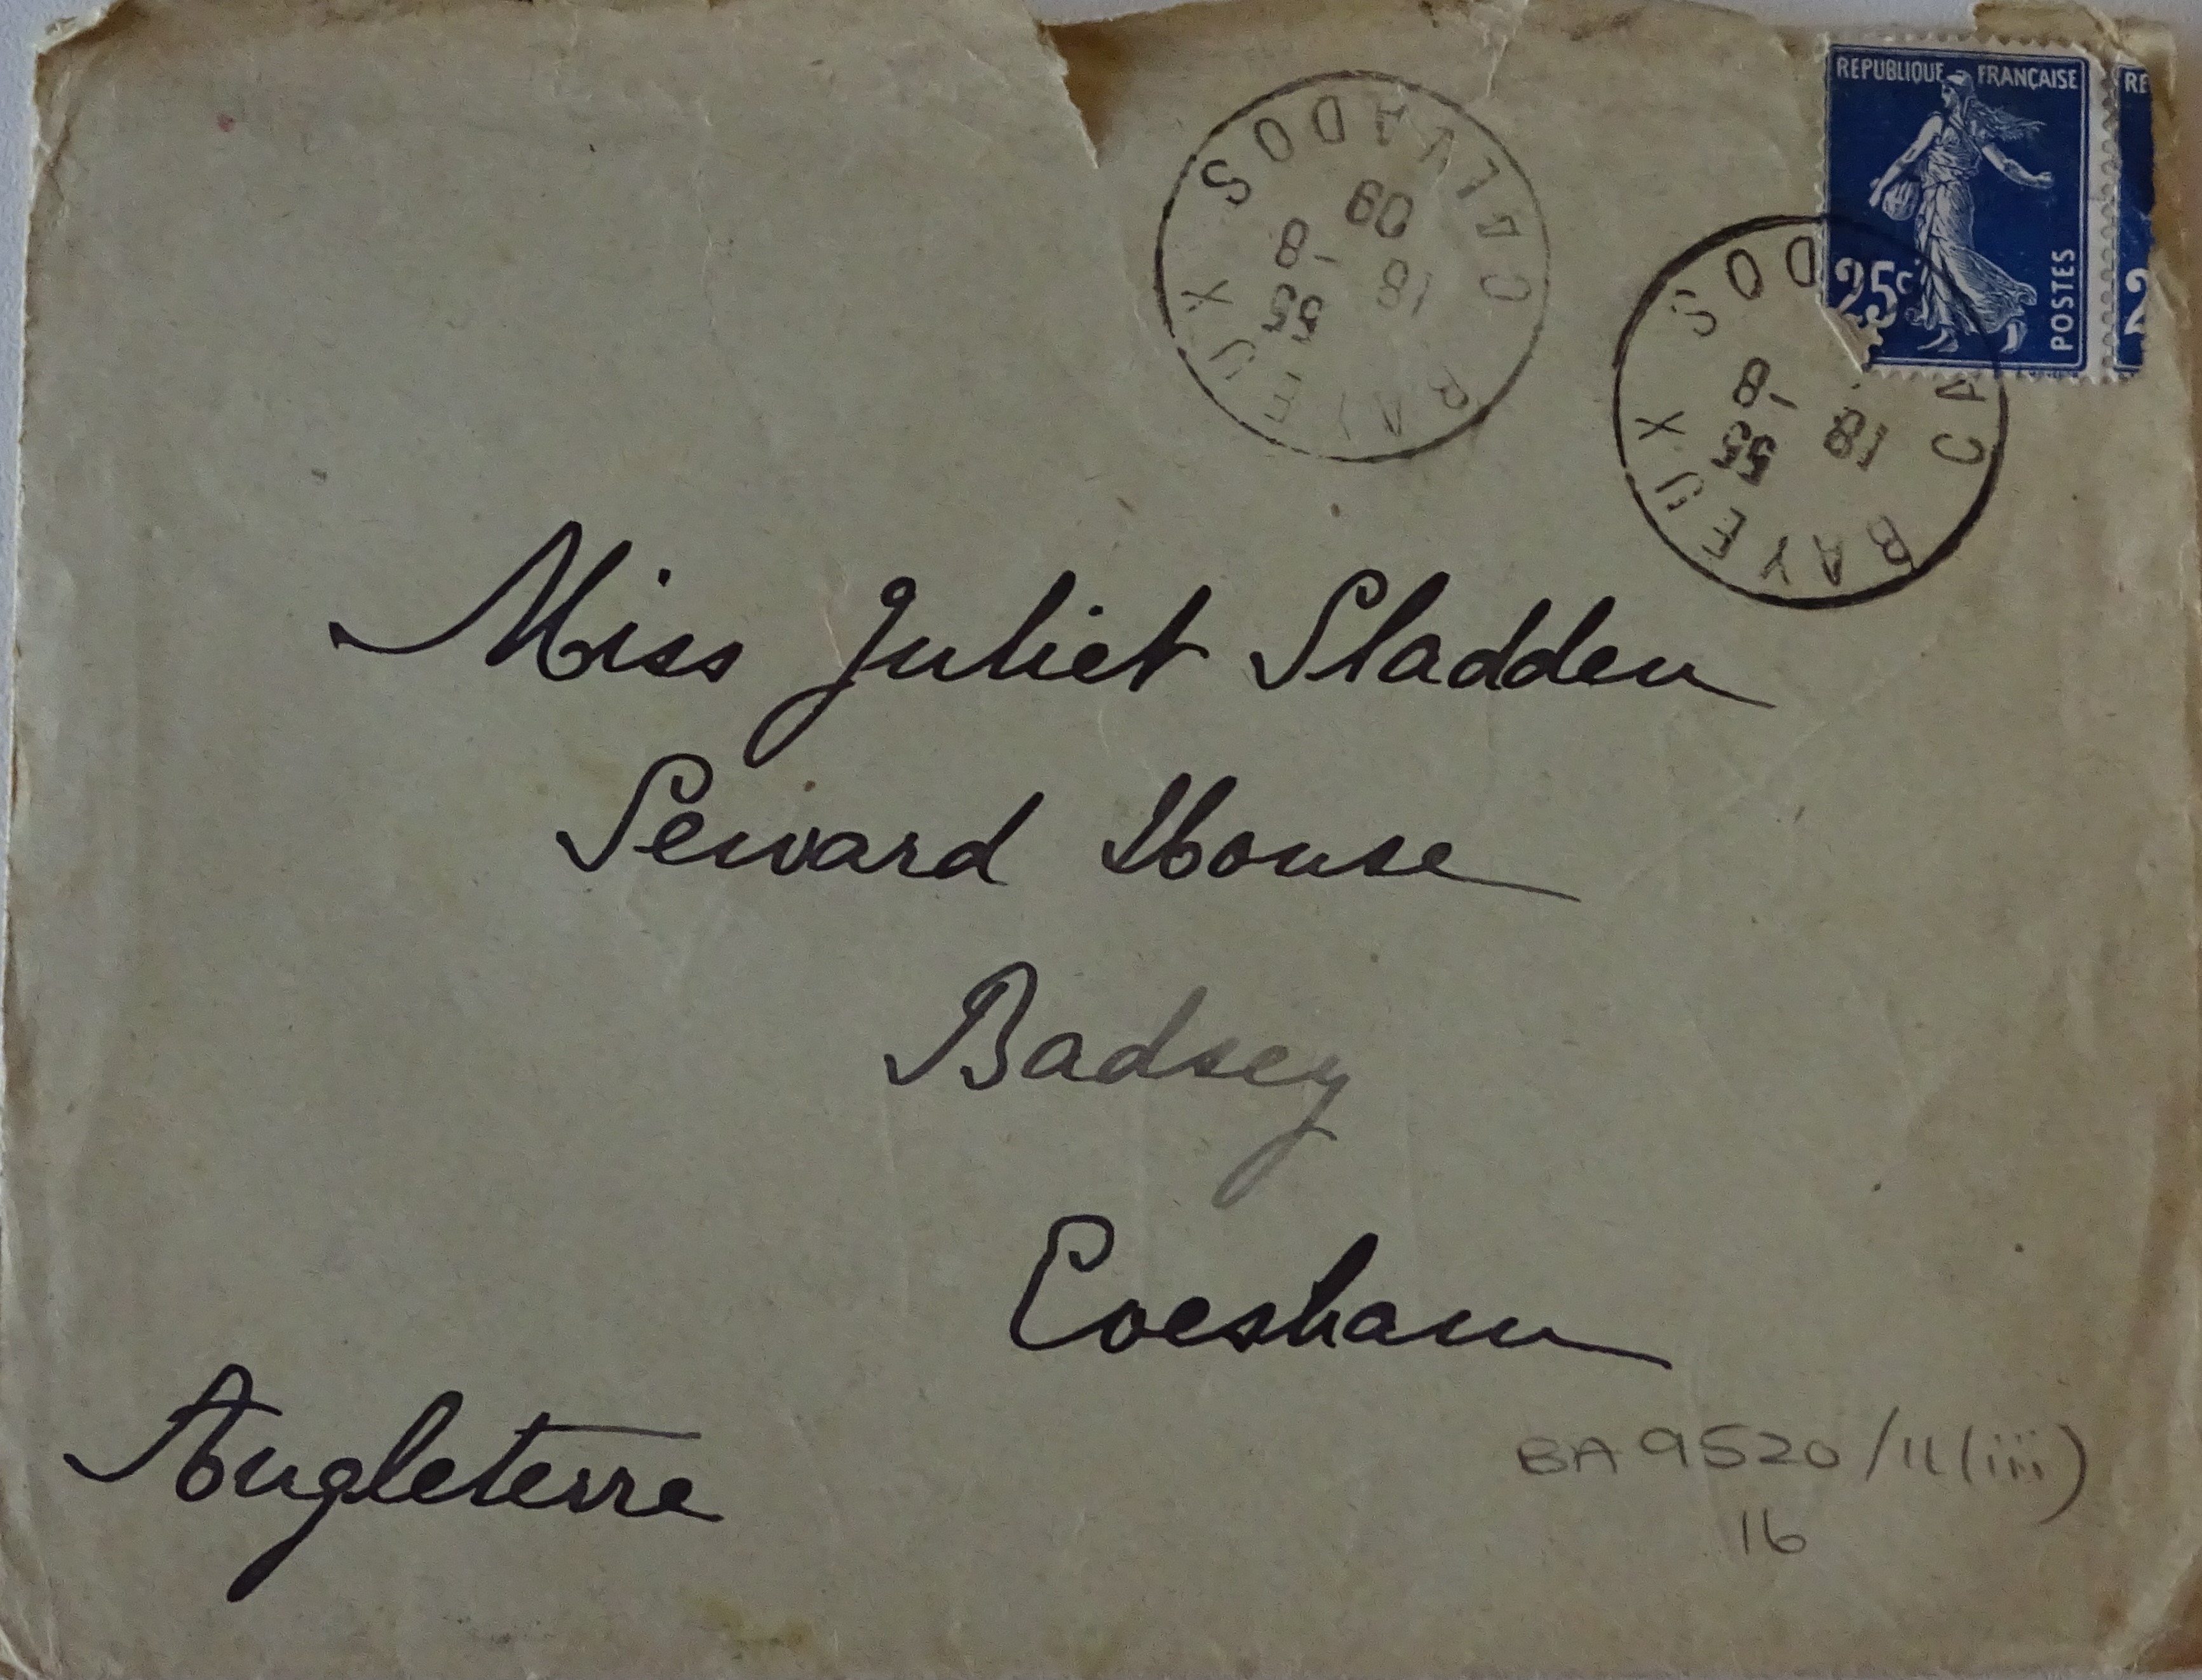 REPUBLIQUE FRANÇAISE
25c
POSTES
RE
2
BAYEUX
55
18 -8
09
CALVADOS
BAYEUX
55
18 -8
CA DOS
Miss Juliet Sladden
Seward House
Badsey
Evesham
Angleterre
BA 9520/11(iii)
16